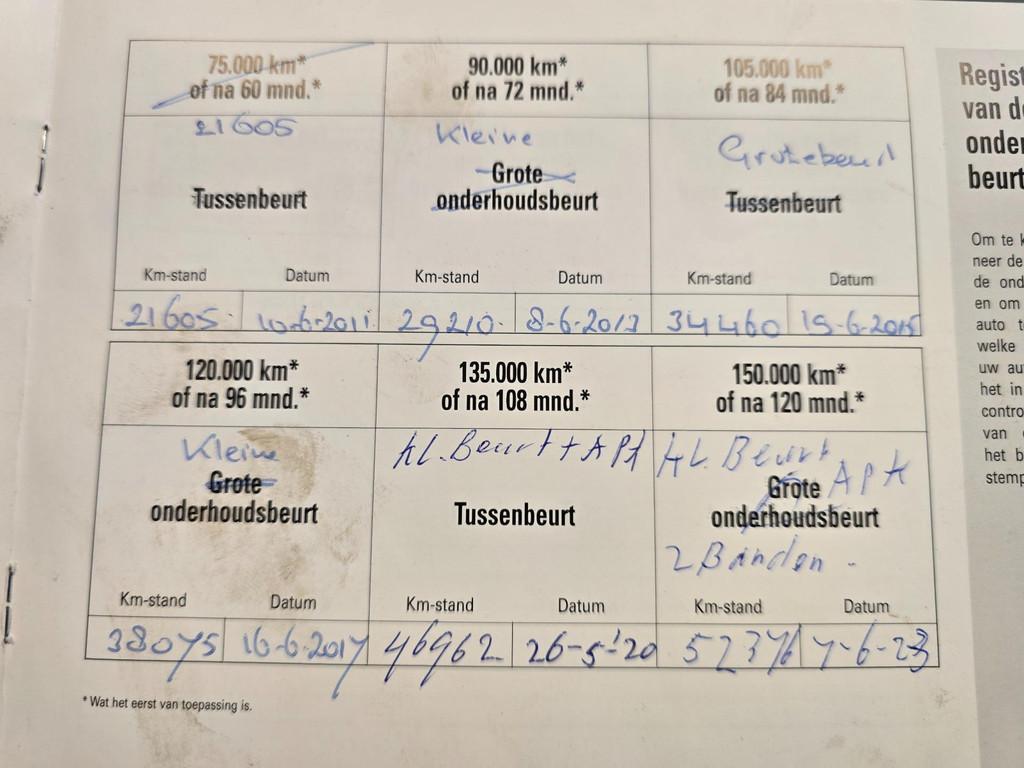 75.000 km*
of na 60 mnd.*
21605
Tussenbeurt
Km-stand Datum
21605 10-6-2011
90.000 km*
of na 72 mnd.*
Kleine
Grote
onderhoudsbeurt
Km-stand Datum
29210 8-6-2013
105.000 km*
of na 84 mnd.*
Grotebeurt
Tussenbeurt
Km-stand Datum
34460 15-6-2015
120.000 km*
of na 96 mnd.*
Kleine
Grote
onderhoudsbeurt
Km-stand Datum
38075 16-6-2017
135.000 km*
of na 108 mnd.*
KL. Beurt + APK
Tussenbeurt
Km-stand Datum
46962 26-5-'20
150.000 km*
of na 120 mnd.*
KL. Beurt
APK
Grote
onderhoudsbeurt
2 Banden -
Km-stand Datum
52376 7-6-23
* Wat het eerst van toepassing is.
Regist
van de
onder
beurt
Om te k
neer de
de ond
en om
auto t
welke
uw au
het in
contro
van
het b
stemp